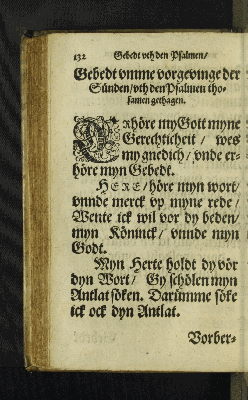 132 Gebedt vth den Psalmen/
Gebedt vmme vorgevinge der
Sünden/ vth den Psalmen tho-
samen gethagen.
ERhöre my Gott myne
Gerechticheit / wes
my gnedich / vnde er-
höre myn Gebedt.
HERE / höre myn wort/
vnnde merck vp myne rede /
Wente ick wil vor dy beden/
myn Köninck / vnnde myn
Godt.
Myn Herte holdt dy vör
dyn Wort / Gy schölen myn
Antlat söken. Darümme söke
ick ock dyn Antlat.
Vorber-